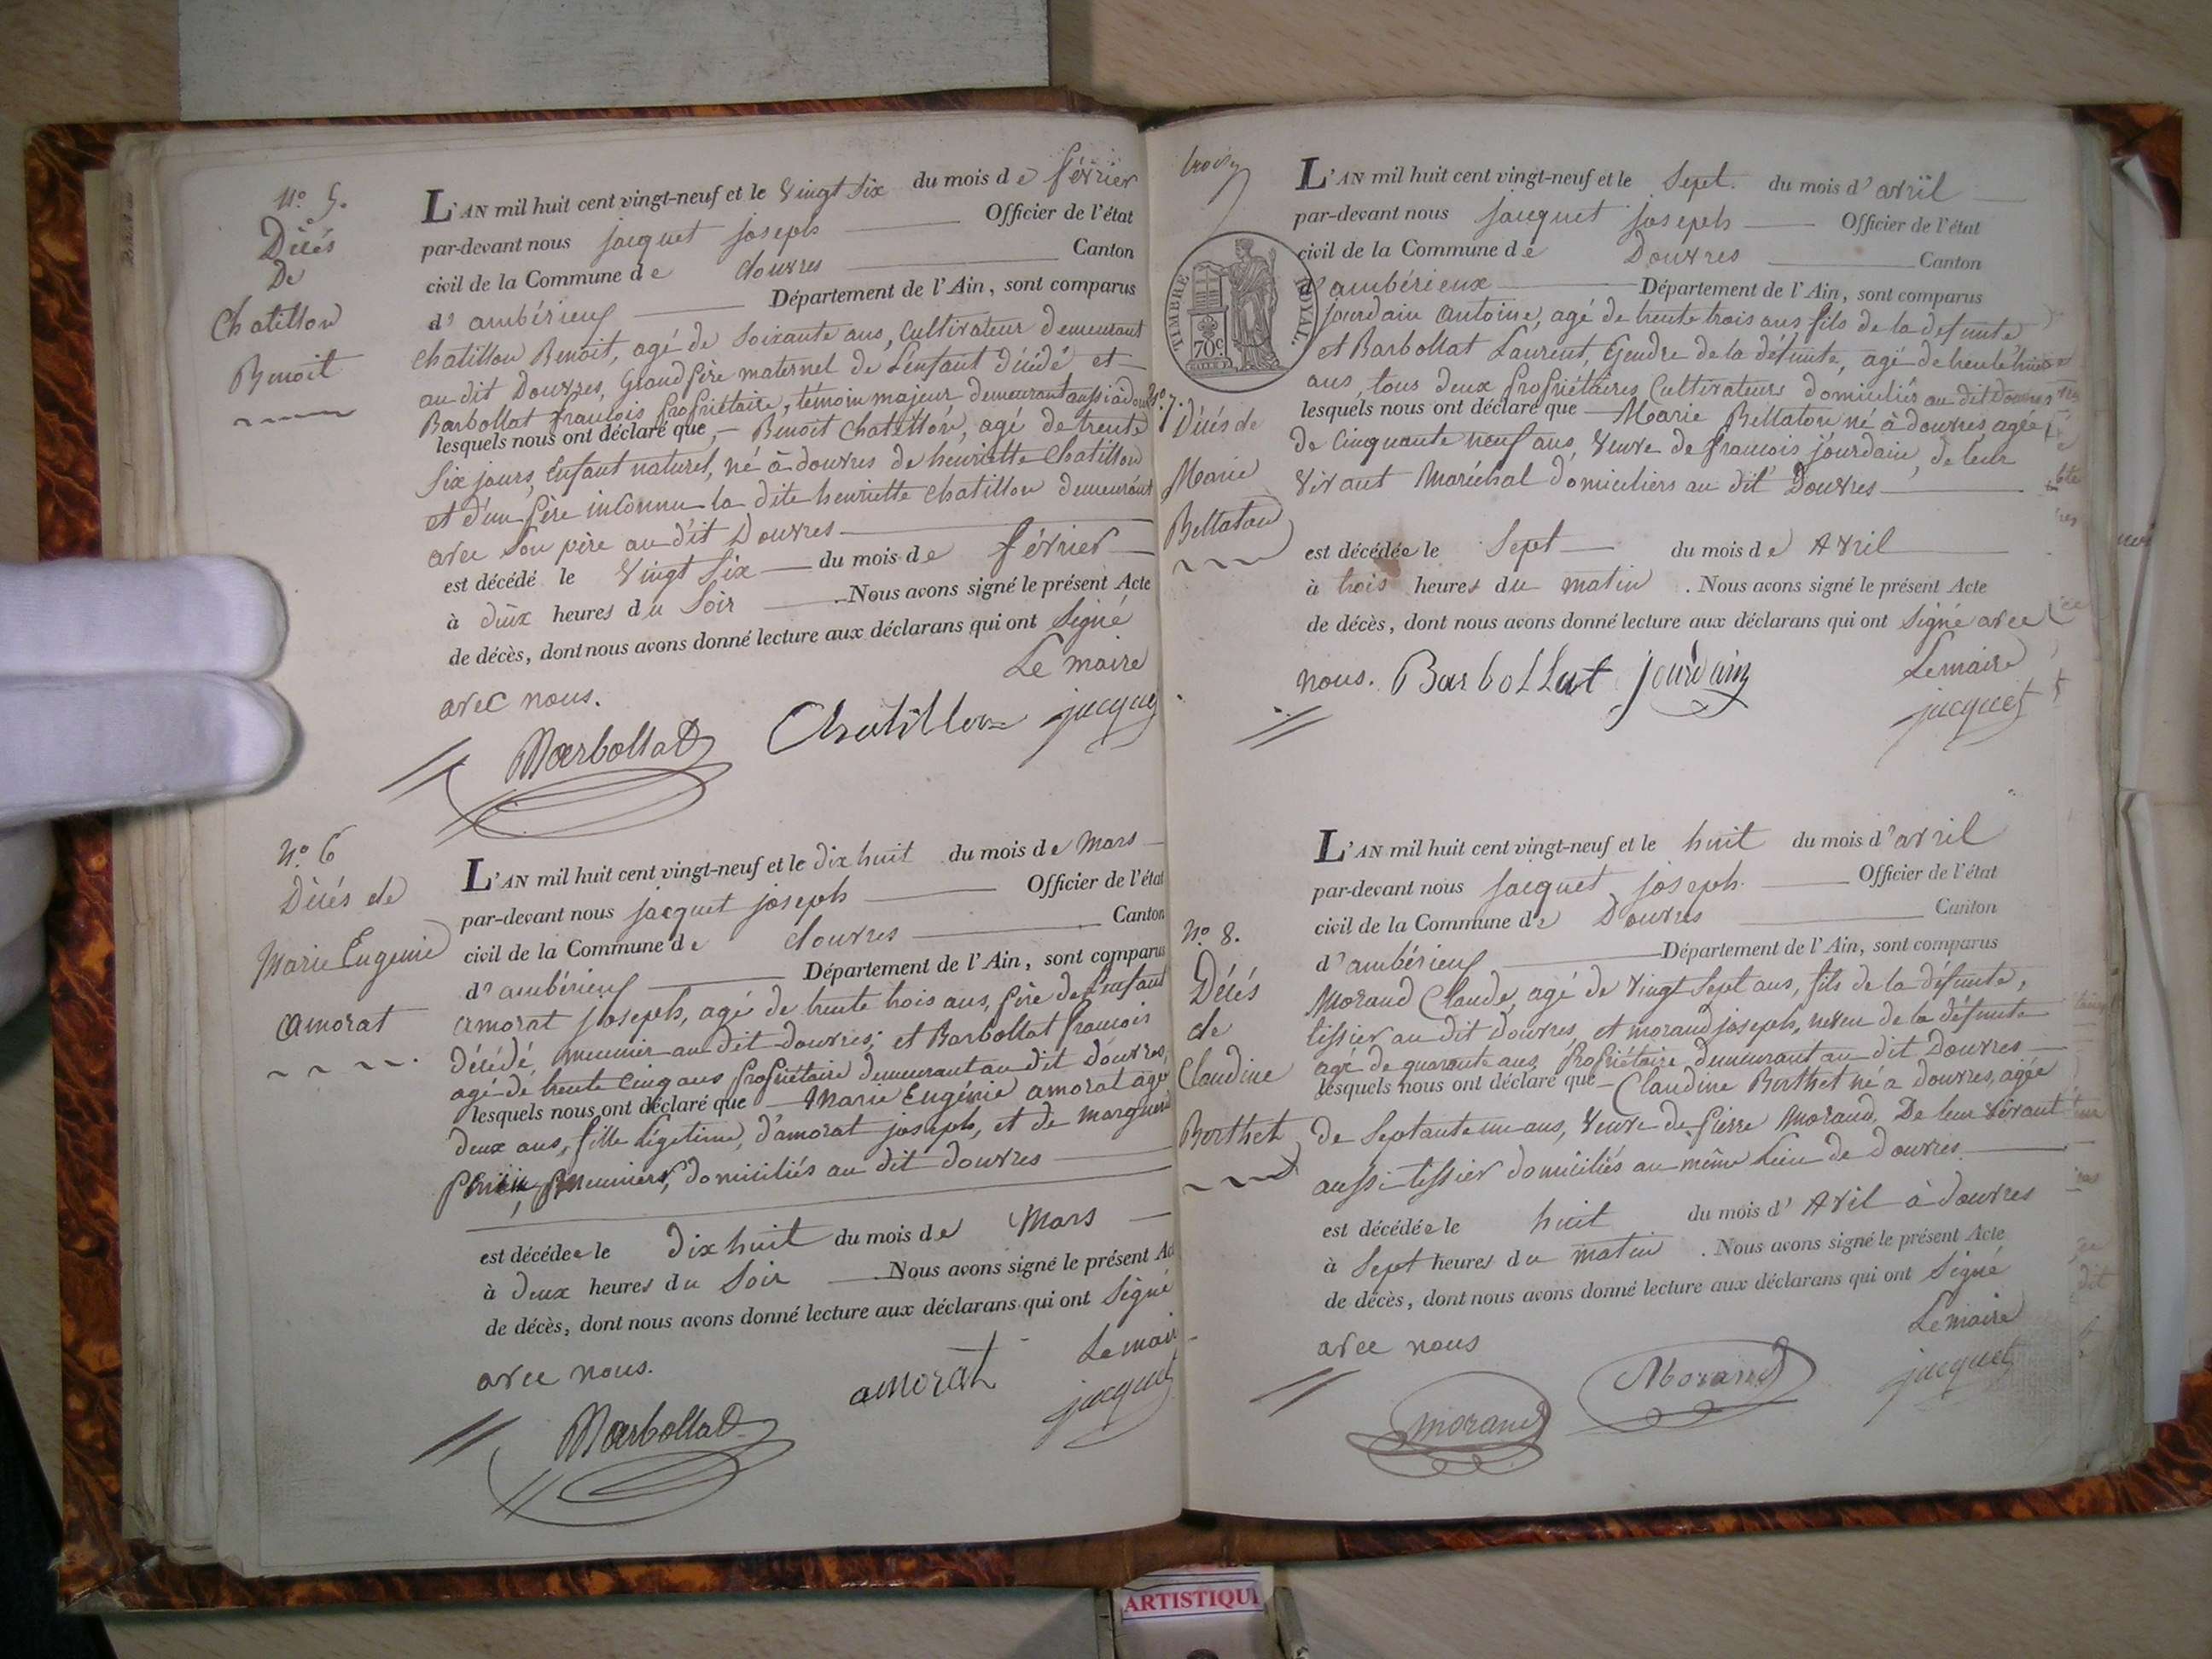 N.º 5.
Décés
De
Chatillon
Benoit
L'AN mil huit cent vingt-neuf et le vingt six du mois de février
par-devant nous jacquet joseph Officier de l'état
civil de la Commune de douvres Canton
d'ambérieux Département de l'Ain, sont comparus
Chatillon Benoit, agé de Soixante ans, Cultivateur demeurant
au dit Douvres, Grand père maternel de L'enfant décédé et
Barbollat francois propriétaire, témoin majeur demeurant aussi à
lesquels nous ont déclaré que, Benoit Chatillon, agé de trente
Six jours, Enfant naturel, né à douvres de henriette Chatillon
et d'un père inconnu la dite henriette chatillon demeurant
avec son père au dit Douvres
est décédé le vingt six du mois de février
à deux heures du Soir Nous avons signé le présent Acte
de décès, dont nous avons donné lecture aux déclarans qui ont Signé
avec nous. Le maire
Barbollat Chatillon jacquet
N.º 6
Décés de
Marie Eugenie
amorat
L'AN mil huit cent vingt-neuf et le dix huit du mois de Mars
par-devant nous jacquet joseph Officier de l'état
civil de la Commune de douvres Canton
d'ambérieux Département de l'Ain, sont comparus
amorat joseph, agé de trente trois ans, père de L'enfant
Décédé, meunier au dit douvres; et Barbollat francois
agé de trente Cinq ans propriétaire demeurant au dit douvres,
lesquels nous ont déclaré que Marie Eugénie amorat agé
deux ans, fille Légetime, d'amorat joseph, et de
meuniers, domiciliés au dit douvres
est décédée le dix huit du mois de Mars
à Deux heures du Soir Nous avons signé le présent
de décès, dont nous avons donné lecture aux déclarans qui ont Signé
avec nous. amorat Le mair
Barbollat jacquet
TIMBRE ROYAL.
70c
N.º 7.
Décés de
Marie
Bellaton
L'AN mil huit cent vingt-neuf et le Sept. du mois d'avril
par-devant nous jacquet joseph Officier de l'état
civil de la Commune de Douvres Canton
d'ambérieux Département de l'Ain, sont comparus
jourdain antoine, agé de trente trois ans fils de la defunte,
et Barbollat Laurent, Gendre de la défunte, agé de
ans, tous deux propriétaires Cultivateurs domiciliés au dit Douvres
lesquels nous ont déclaré que Marie Bellaton né à douvres agée
de Cinquante neuf ans, veuve de francois jourdain, de leur
vivant Maréchal domiciliers au dit Douvres
est décédée le Sept du mois de Avril
à trois heures du matin . Nous avons signé le présent Acte
de décès, dont nous avons donné lecture aux déclarans qui ont Signé avec
nous. Barbollat jourdain Lemaire
jacquet
N.º 8.
Décés
de
Claudine
Berthet
L'AN mil huit cent vingt-neuf et le huit du mois d'avril
par-devant nous jacquet joseph Officier de l'état
civil de la Commune de Douvres Canton
d'ambérieux Département de l'Ain, sont comparus
Morand Claude, agé de vingt Sept ans, fils de la défunte,
tissier au dit Douvres, et morand joseph, neveu de la défunte
agé de quarante ans, propriétaire demeurant au dit Douvres
lesquels nous ont déclaré que Claudine Berthet né a douvres, agée
de Septante un ans, veuve de pierre Morand, De leur vivant
aussi tissier domiciliés au même Lieu de Douvres
est décédée le huit du mois d'Avril à douvres
à Sept heures du matin . Nous avons signé le présent Acte
de décès, dont nous avons donné lecture aux déclarans qui ont Signé
avec nous Le maire
morand Morand jacquet
ARTISTIQU